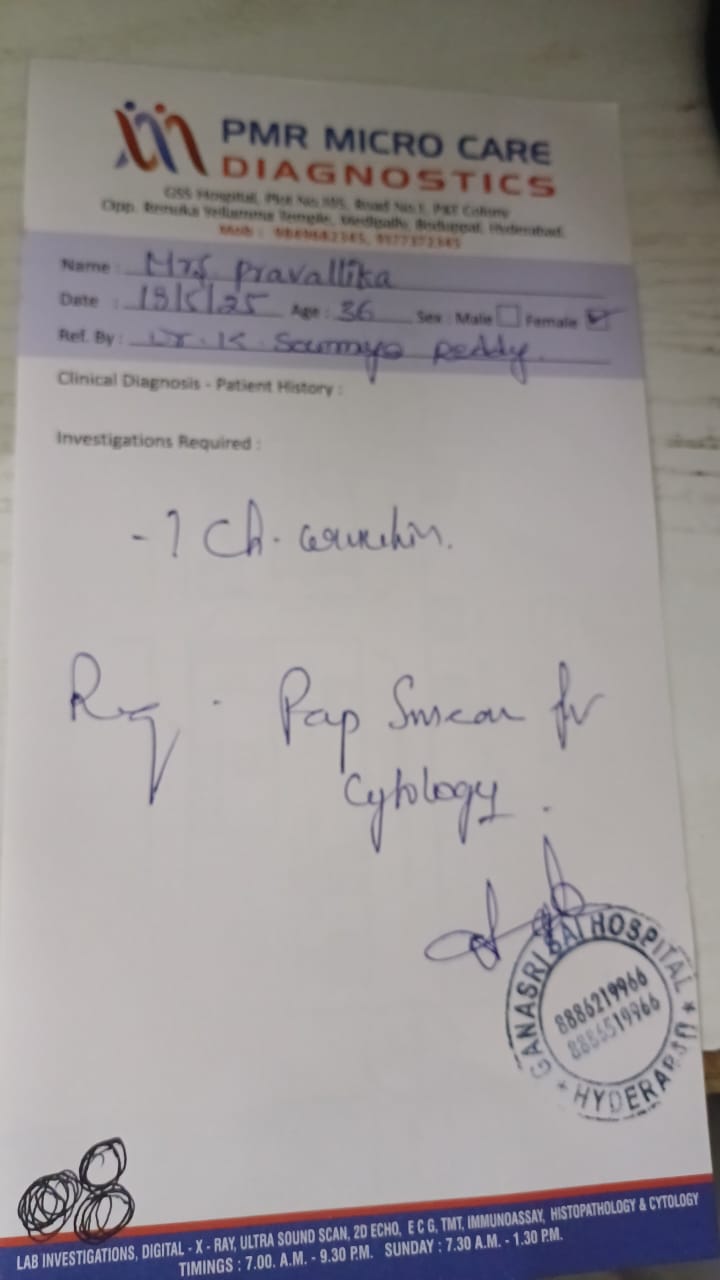 PMR MICRO CARE
DIAGNOSTICS
GSS Hospital, Plot No. Road No.1, P&T Colony
Opp. Renuka Yellamma Temple, Medipally, Boduppal, Hyderabad.
Mob : 9849682345, 9177372345
Name : Mrs. Pravallika
Date : 19/5/25 Age : 36 Sex : Male Female ✓
Ref. By : Dr. K. Soumya Reddy.
Clinical Diagnosis - Patient History :
Investigations Required :
- ? Ch. cervicitis.
Req . Pap Smear for
Cytology .
GANASRI SAI HOSPITAL * HYDERABAD *
8886219966
8886519966
LAB INVESTIGATIONS, DIGITAL - X - RAY, ULTRA SOUND SCAN, 2D ECHO, E C G, TMT, IMMUNOASSAY, HISTOPATHOLOGY & CYTOLOGY
TIMINGS : 7.00. A.M. - 9.30 P.M. SUNDAY : 7.30 A.M. - 1.30 P.M.